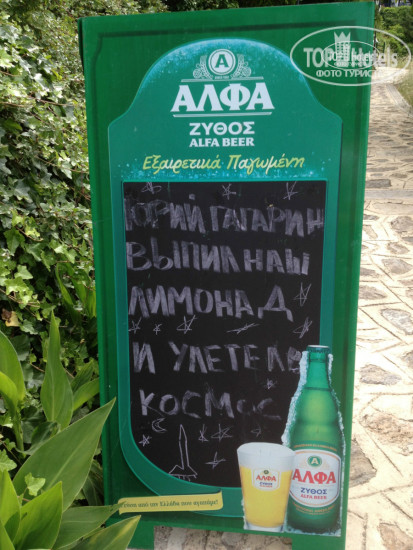 TOPHotels
ФОТО ТУРИСТА
ΑΛΦΑ
ΖΥΘΟΣ
ALFA BEER
Εξαιρετικά Παγωμένη
ЮРИЙ ГАГАРИН
ВЫПИЛ НАШ
ЛИМОНАД
И УЛЕТЕЛ В
КОСМОС
ΑΛΦΑ
ΖΥΘΟΣ
ΑΛΦΑ
ΖΥΘΟΣ
από την Ελλάδα που αγαπάμε!